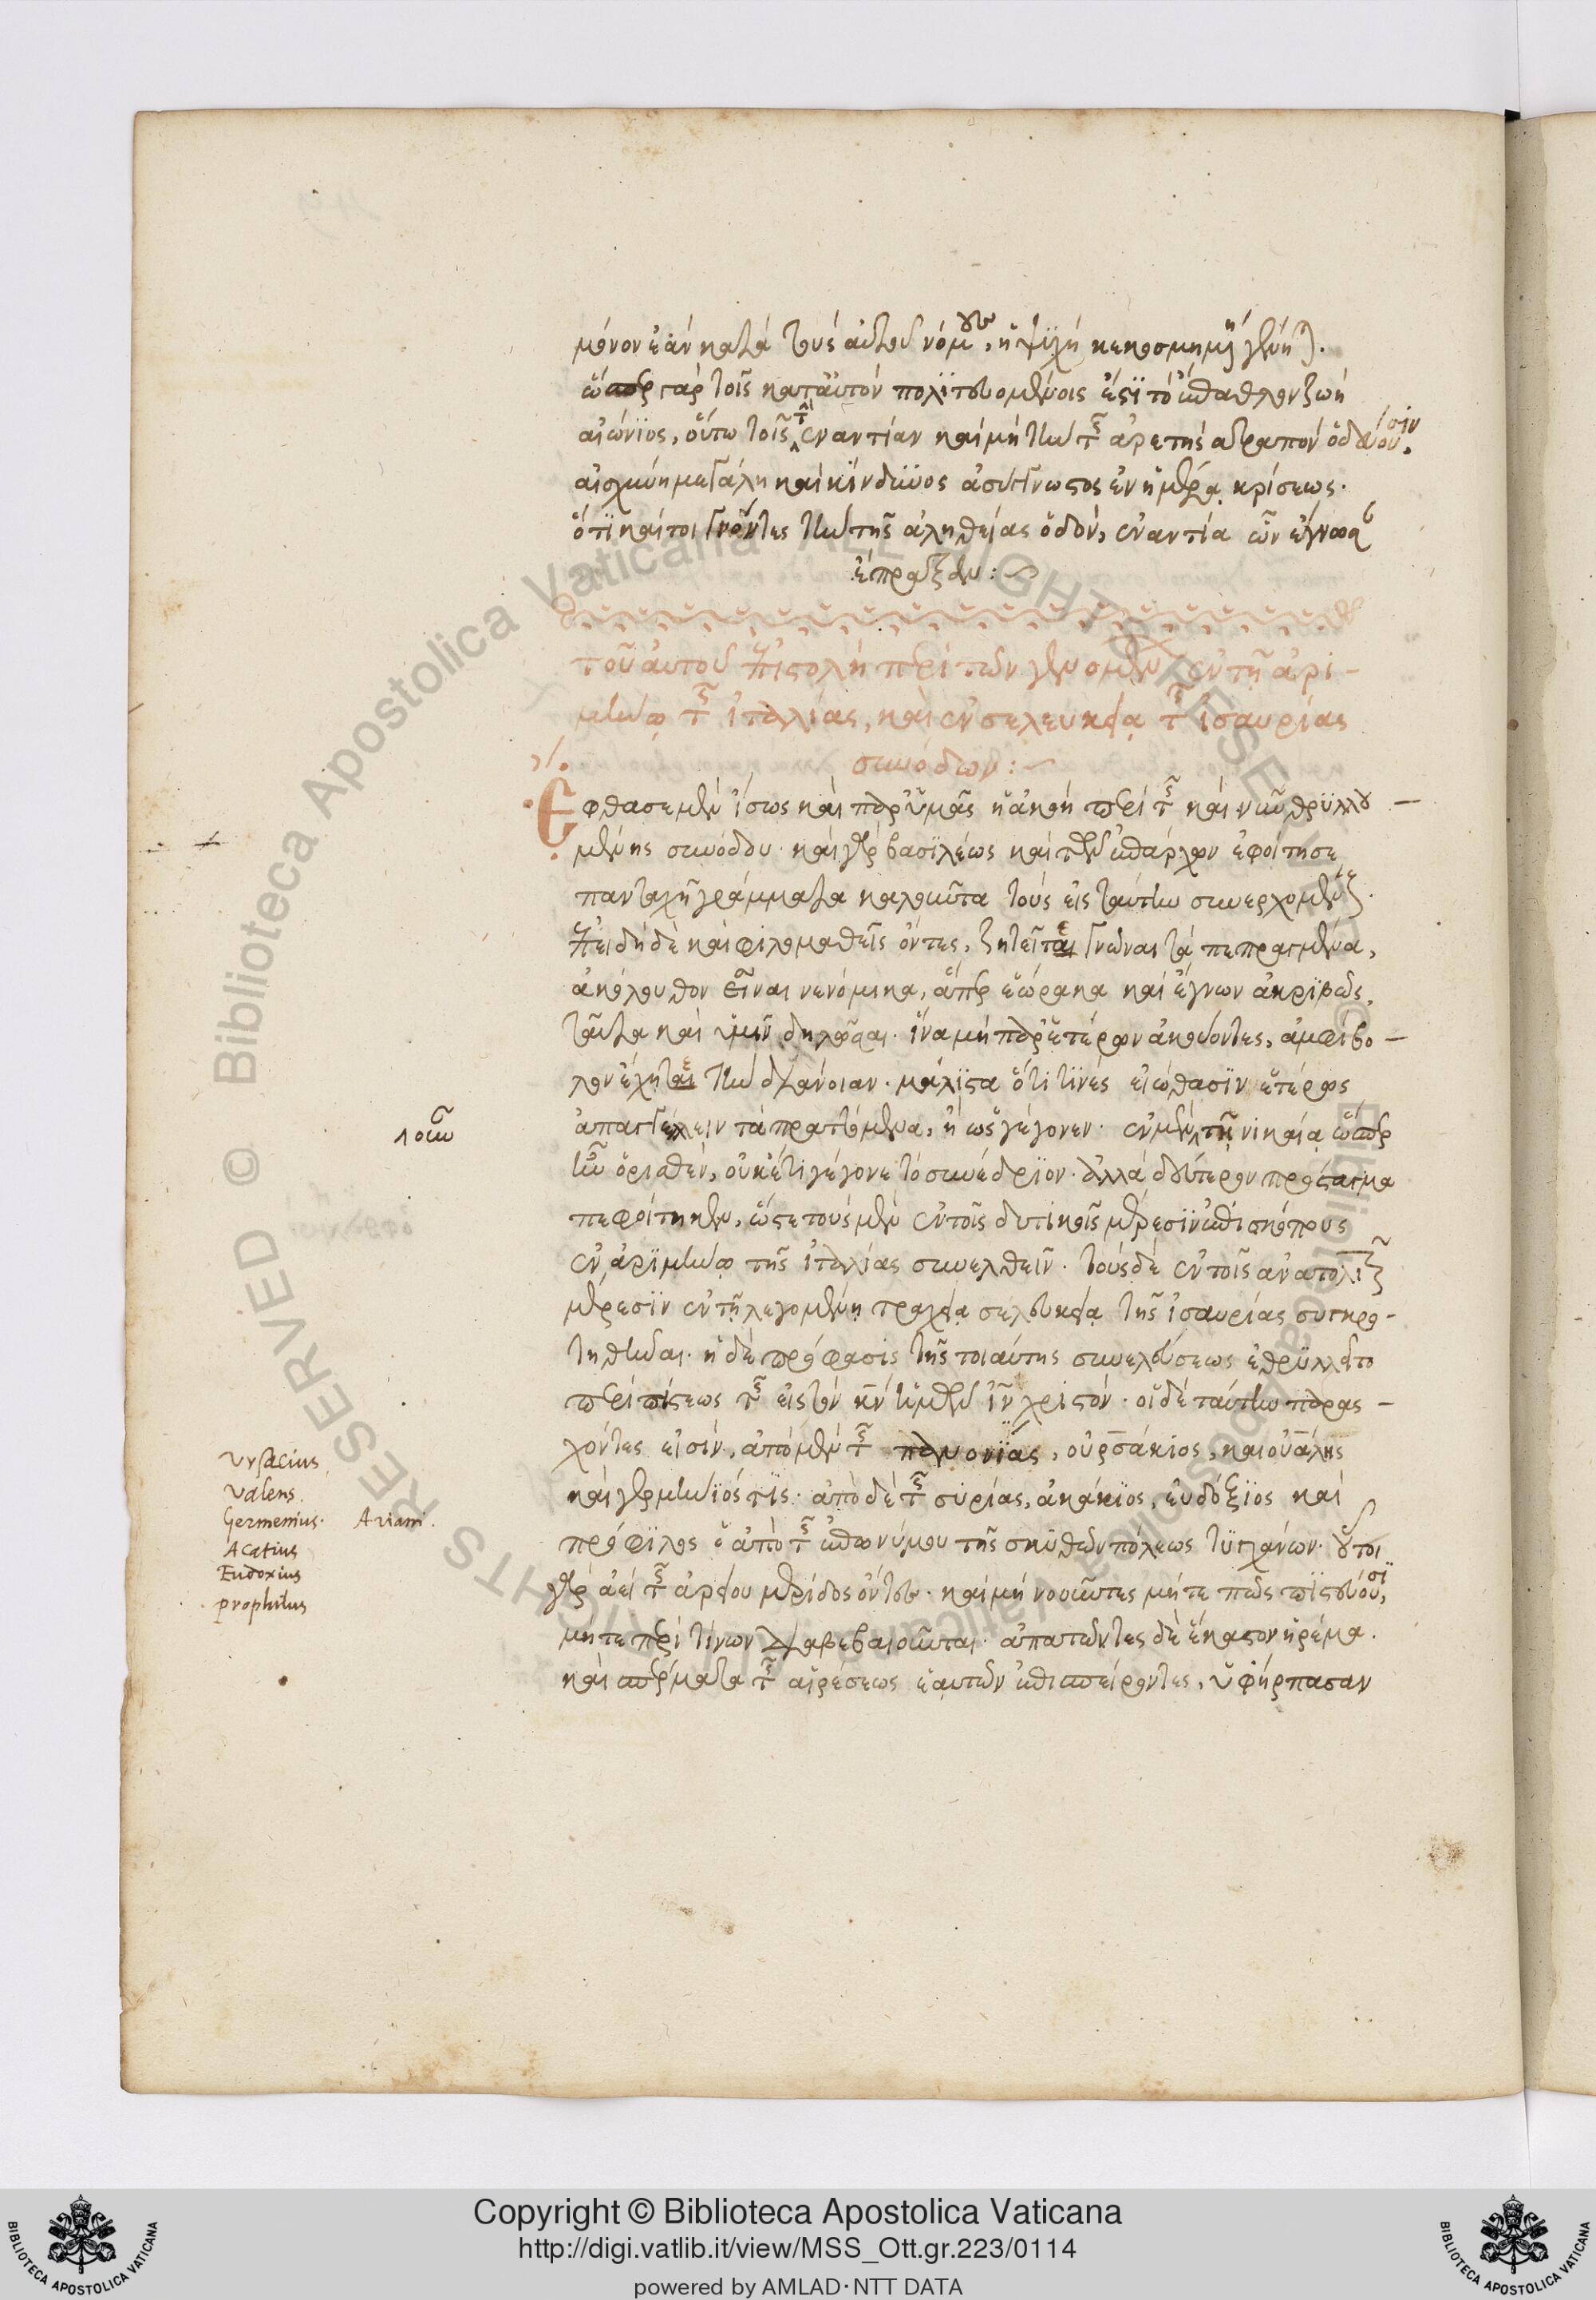 μόνον ἐὰν κατὰ τοὺς αὐτοῦ νόμους, ἡ ψϋχὴ κεκοσμημένη γένηται.
ὥσπερ γὰρ τοῖς κατ αὐτὸν πολϊτευομένοις ἐστϊ τὸ ἔπαθλον ζωὴ
αἰώνϊος, οὕτω τοῖς τὴν ἐναντίαν καὶ μὴ τὴν τῆς ἀρετῆς ἀτραπὸν ὁδεύουσιν,
αἰσχύνη μεγάλη καὶ κίνδϋνος ἀσύγγνωστος ἐν ἡμέρᾳ κρίσεως.
ὅτϊ καίτοι γνόντες τὴν τῆς ἀληθείας ὁδὸν, ἐναντία ὧν ἔγνωσαν
ἔπραξαν:
τοῦ αὐτοῦ ἐπιστολὴ περὶ τῶν γενομένων ἐν τῇ ἀρι-
μίνῳ τῆς ἰταλίας, καὶ ἐν σελευκείᾳ τῆς ἰσαυρίας
συνόδων:
Εφθασε μὲν ἴσως καὶ πρὸς ὑμᾶς ἡ ἀκοὴ περὶ τῆς καὶ νῦν θρϋλλου-
μένης συνόδου. καὶ γὰρ βασϊλέως καὶ τῶν ἐπάρχων ἐφοίτησε
πανταχῆ γράμματα καλοῦντα τοὺς εἰς ταύτην συνερχομένους.
ἐπειδὴ δὲ καὶ φιλομαθεῖς ὄντες, ζητεῖται γνῶναι τὰ πεπραγμένα,
ἀκόλουθον εἶναι νενόμικα, ἅπερ ἑώρακα καὶ ἔγνων ἀκριβῶς,
ταῦτα καὶ ὑμῖν δηλῶσαι. ἵνα μὴ παρ ἑτέρων ἀκούοντες, ἀμφίβο-
λον ἔχηται τὴν διάνοιαν. μάλϊστα ὅτι τϊνὲς εἰώθασϊν ἑτέρως
ἀπαγγέλλειν τὰ πραττόμενα, ἢ ὡς γέγονεν. ἐν μὲν τῇ νικαίᾳ ὥσπερ
ἦν ὁρισθὲν, οὐκέτι γέγονε τὸ συνέδρϊον. ἀλλὰ δεύτερον πρόσταγμα
πεφοίτηκεν, ὥστε τοὺς μὲν ἐν τοῖς δυτικοῖς μέρεσϊν ἐπισκόπους
ἐν ἀρϊμίνῳ τῆς ἰταλίας συνελθεῖν. τοὺς δὲ ἐν τοῖς ἀνατολικοῖς
μέρεσϊν ἐν τῇ λεγομένῃ τραχείᾳ σελευκείᾳ τῆς ἰσαυρίας συγκρο-
τηθῆναι. ἡ δὲ πρόφασις τῆς τοιαύτης συνελεύσεως ἐθρϋλλεῖτο
περὶ πίστεως τῆς εἰς τὸν κν ἡμῶν ἰν χριστόν. οἱ δὲ ταύτην παρασ-
χόντες εἰσὶν, ἀπὸ μὲν τῆς πανονϊας, οὐρσάκιος, καὶ οὐάλης
καὶ γερμίνϊός τϊς. ἀπὸ δὲ τῆς συρίας, ἀκάκιος, εὐδόξϊος καὶ
πρόφϊλος ὁ ἀπὸ τῆς ἐπωνύμου τῆς σκϋθῶν πόλεως τϋγχάνων. οὗτοι
γὰρ ἀεὶ τῆς ἀρείου μερίδος ὄντες. καὶ μὴ νοοῦντες μήτε πῶς πϊστεύουσϊ,
μήτε περὶ τίνων διαβεβαιοῦνται. ἀπατῶντες δὲ ἕκαστον ἠρέμα.
καὶ σπέρματα τῆς αἱρέσεως ἑαυτῶν ἐπισπείροντες, ὑφήρπασαν
Vrsacius
Valens.
Germenius. Ariani.
Acatius
Eudoxius
prophilus